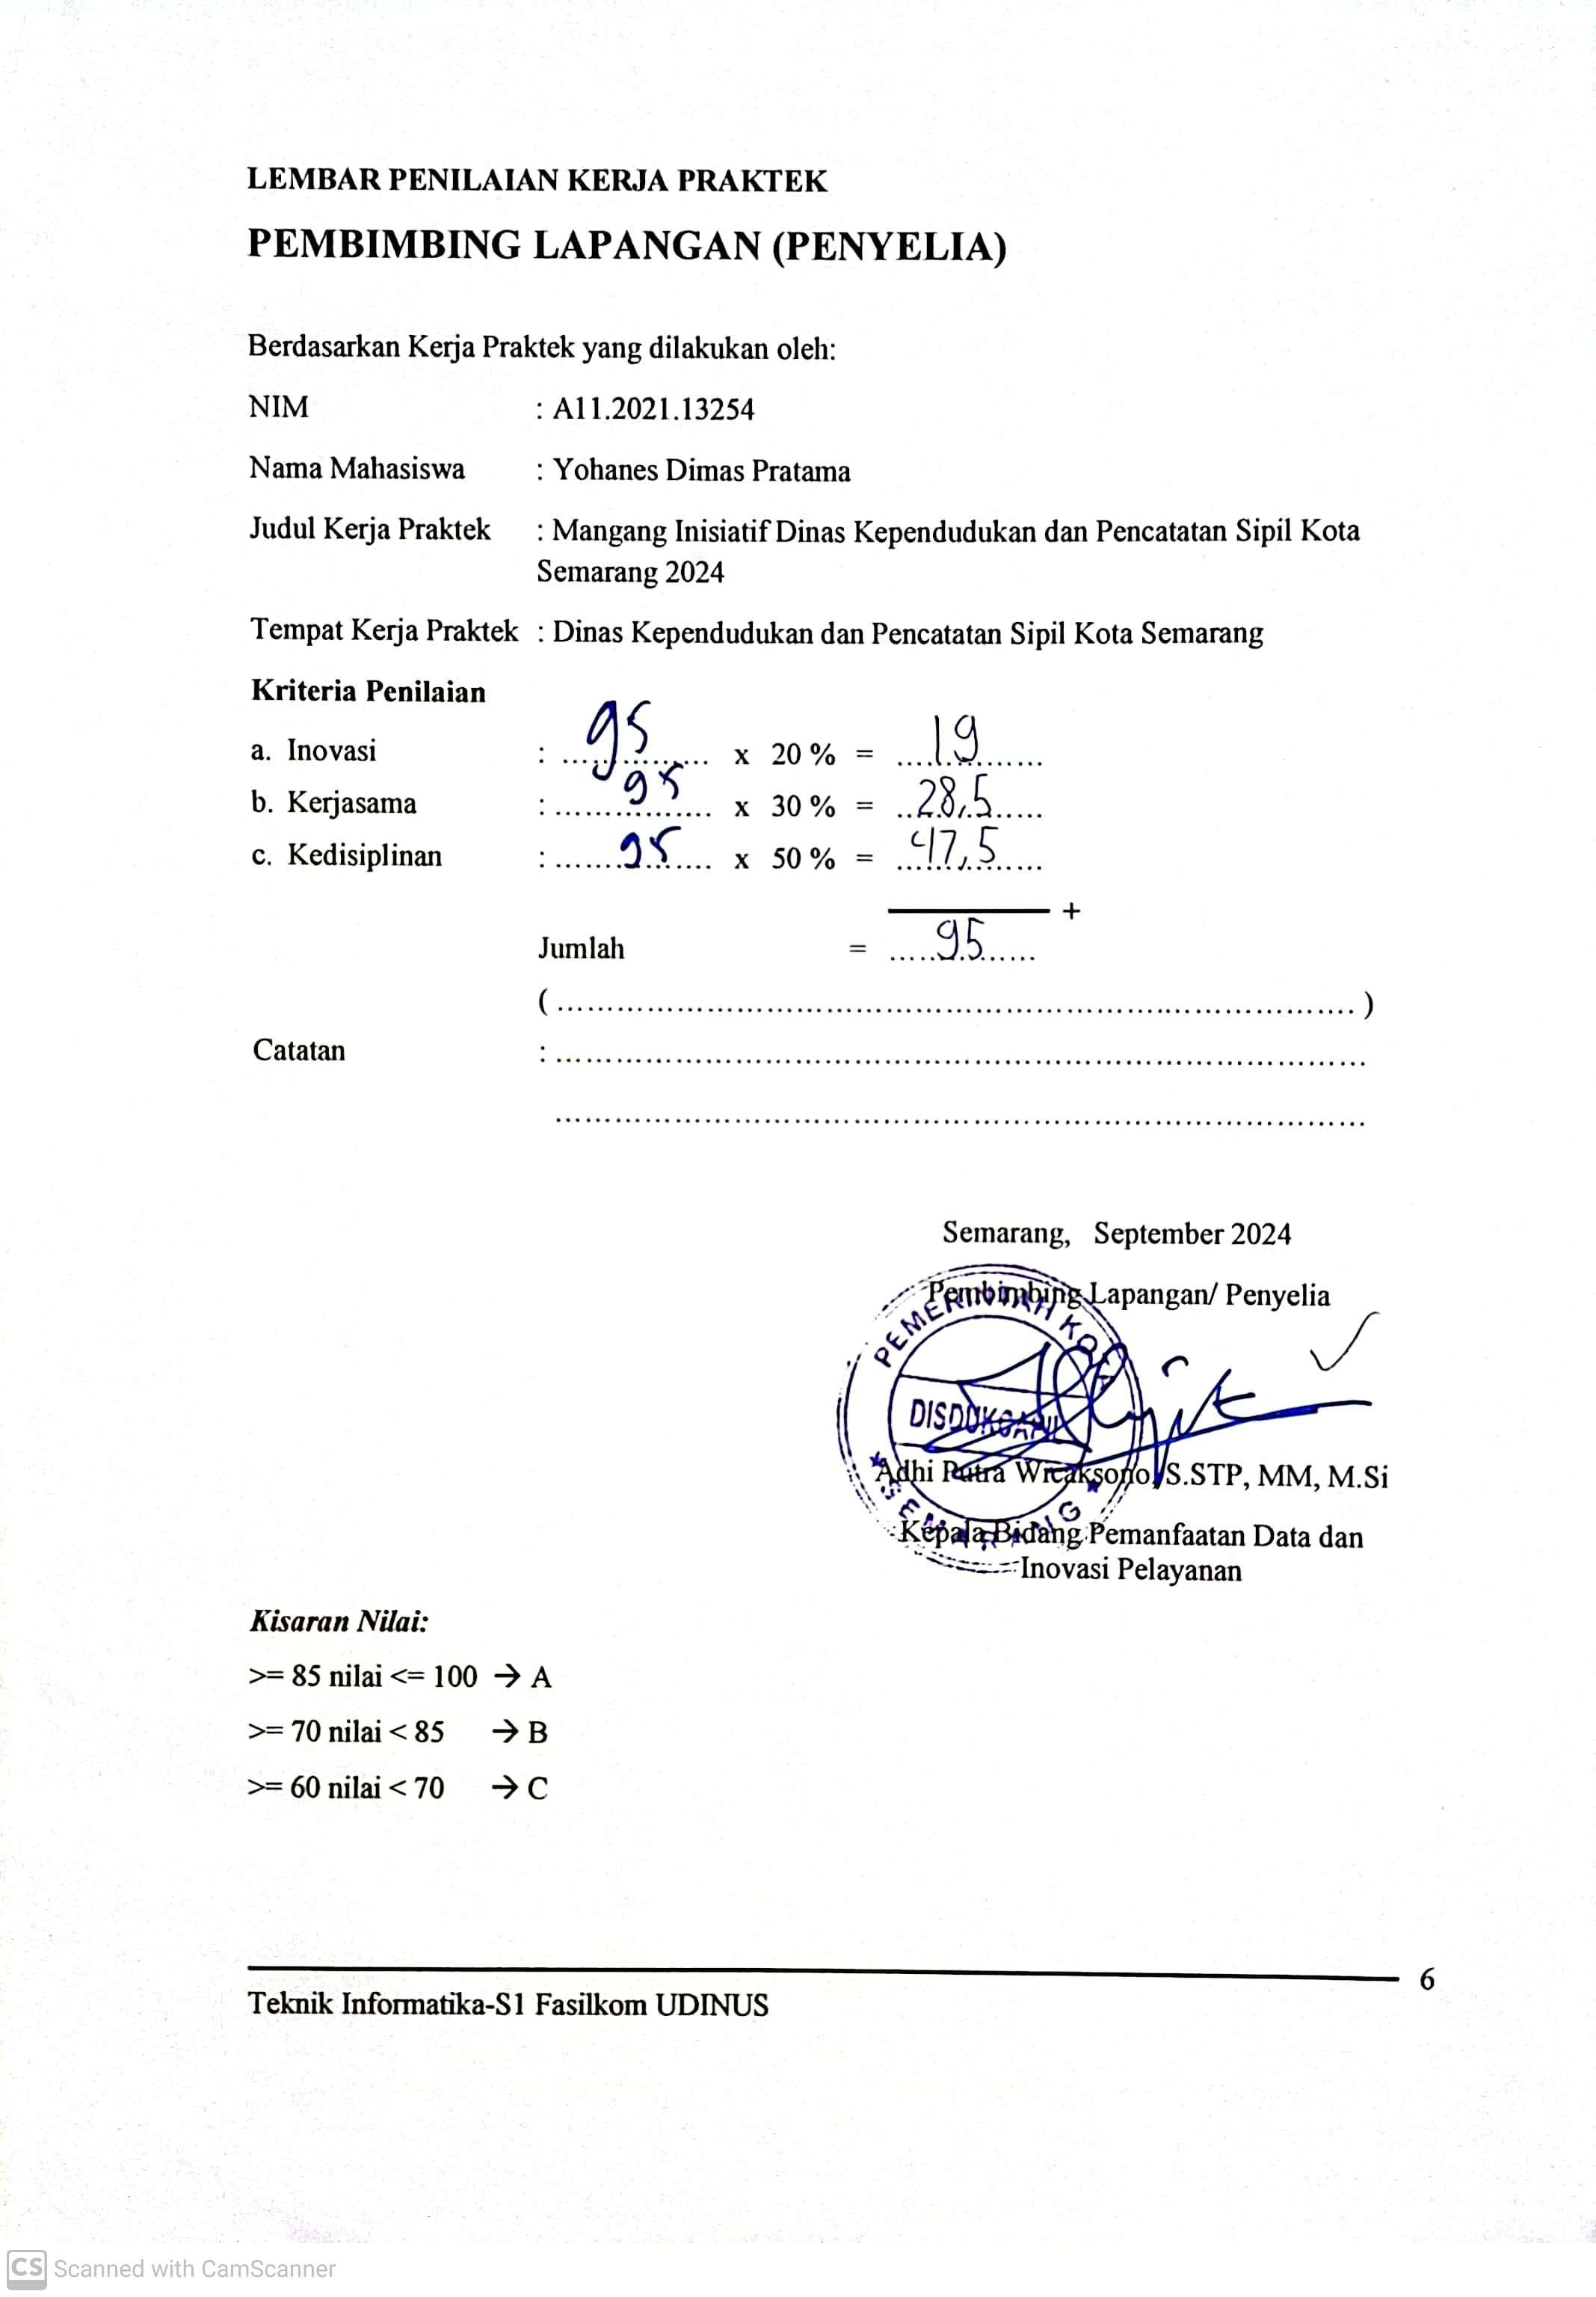 LEMBAR PENILAIAN KERJA PRAKTEK
PEMBIMBING LAPANGAN (PENYELIA)
Berdasarkan Kerja Praktek yang dilakukan oleh:
NIM : A11.2021.13254
Nama Mahasiswa : Yohanes Dimas Pratama
Judul Kerja Praktek : Mangang Inisiatif Dinas Kependudukan dan Pencatatan Sipil Kota
Semarang 2024
Tempat Kerja Praktek : Dinas Kependudukan dan Pencatatan Sipil Kota Semarang
Kriteria Penilaian
a. Inovasi : 95 x 20 % = 19
b. Kerjasama : 95 x 30 % = 28,5
c. Kedisiplinan : 95 x 50 % = 47,5
+
Jumlah = 95
(........................................)
Catatan : ........................................
........................................
Semarang, September 2024
Pembimbing Lapangan/ Penyelia
PEMERINTAH KOTA
DISDUKCAPIL
SEMARANG
Adhi Putra Wicaksono, S.STP, MM, M.Si
Kepala Bidang Pemanfaatan Data dan
Inovasi Pelayanan
Kisaran Nilai:
>= 85 nilai <= 100 → A
>= 70 nilai < 85 → B
>= 60 nilai < 70 → C
6
Teknik Informatika-S1 Fasilkom UDINUS
CS Scanned with CamScanner